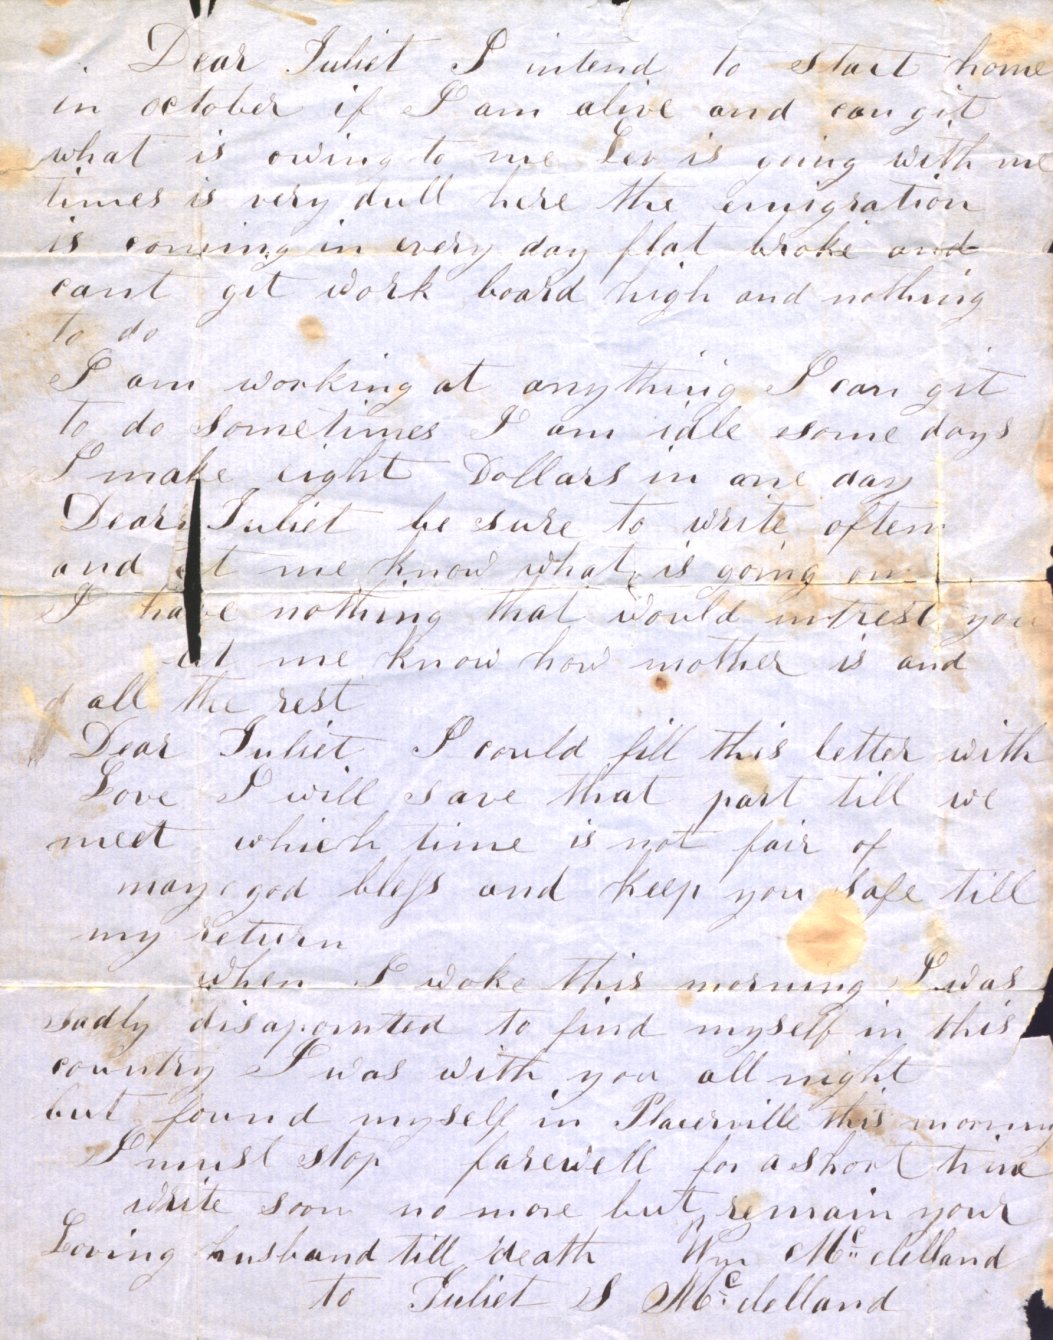 Dear Juliet I intend to start home
in october if I am alive and can git
what is owing to me Lev is going with me
times is very dull here the emigration
is coming in every day flat broke and
cant git work board high and nothing
to do
I am working at anything I can git
to do sometimes I am idle some days
I make eight Dollars in one day
Dear Juliet be sure to write often
and me know what is going on
I have nothing that would intrest you
me know how mother is and
all the rest
Dear Juliet I could fill this letter with
Love I will save that part till we
meet which time is not fair of
may god bless and keep you safe till
my return
when I woke this morning I was
sadly disapointed to find myself in this
country I was with you all night
but found myself in Placerville this morning
I must stop farewell for a short time
write soon no more but remain your
Loving husband till death Wm McClelland
to Juliet S McClelland